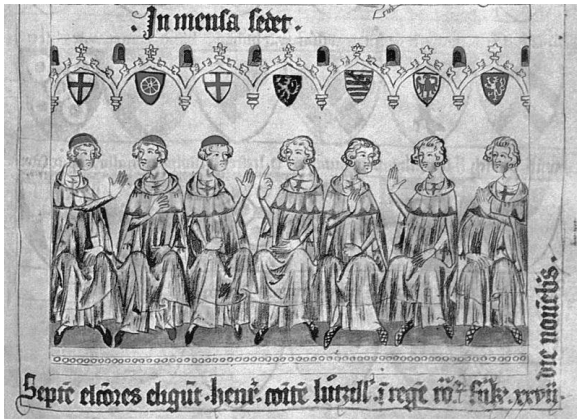 · In mensa sedet ·
Septē elc̄ores eligūt · henr̄ · comitē lutzill' · ī regē rō · xxvij ·
die nouēbis ·